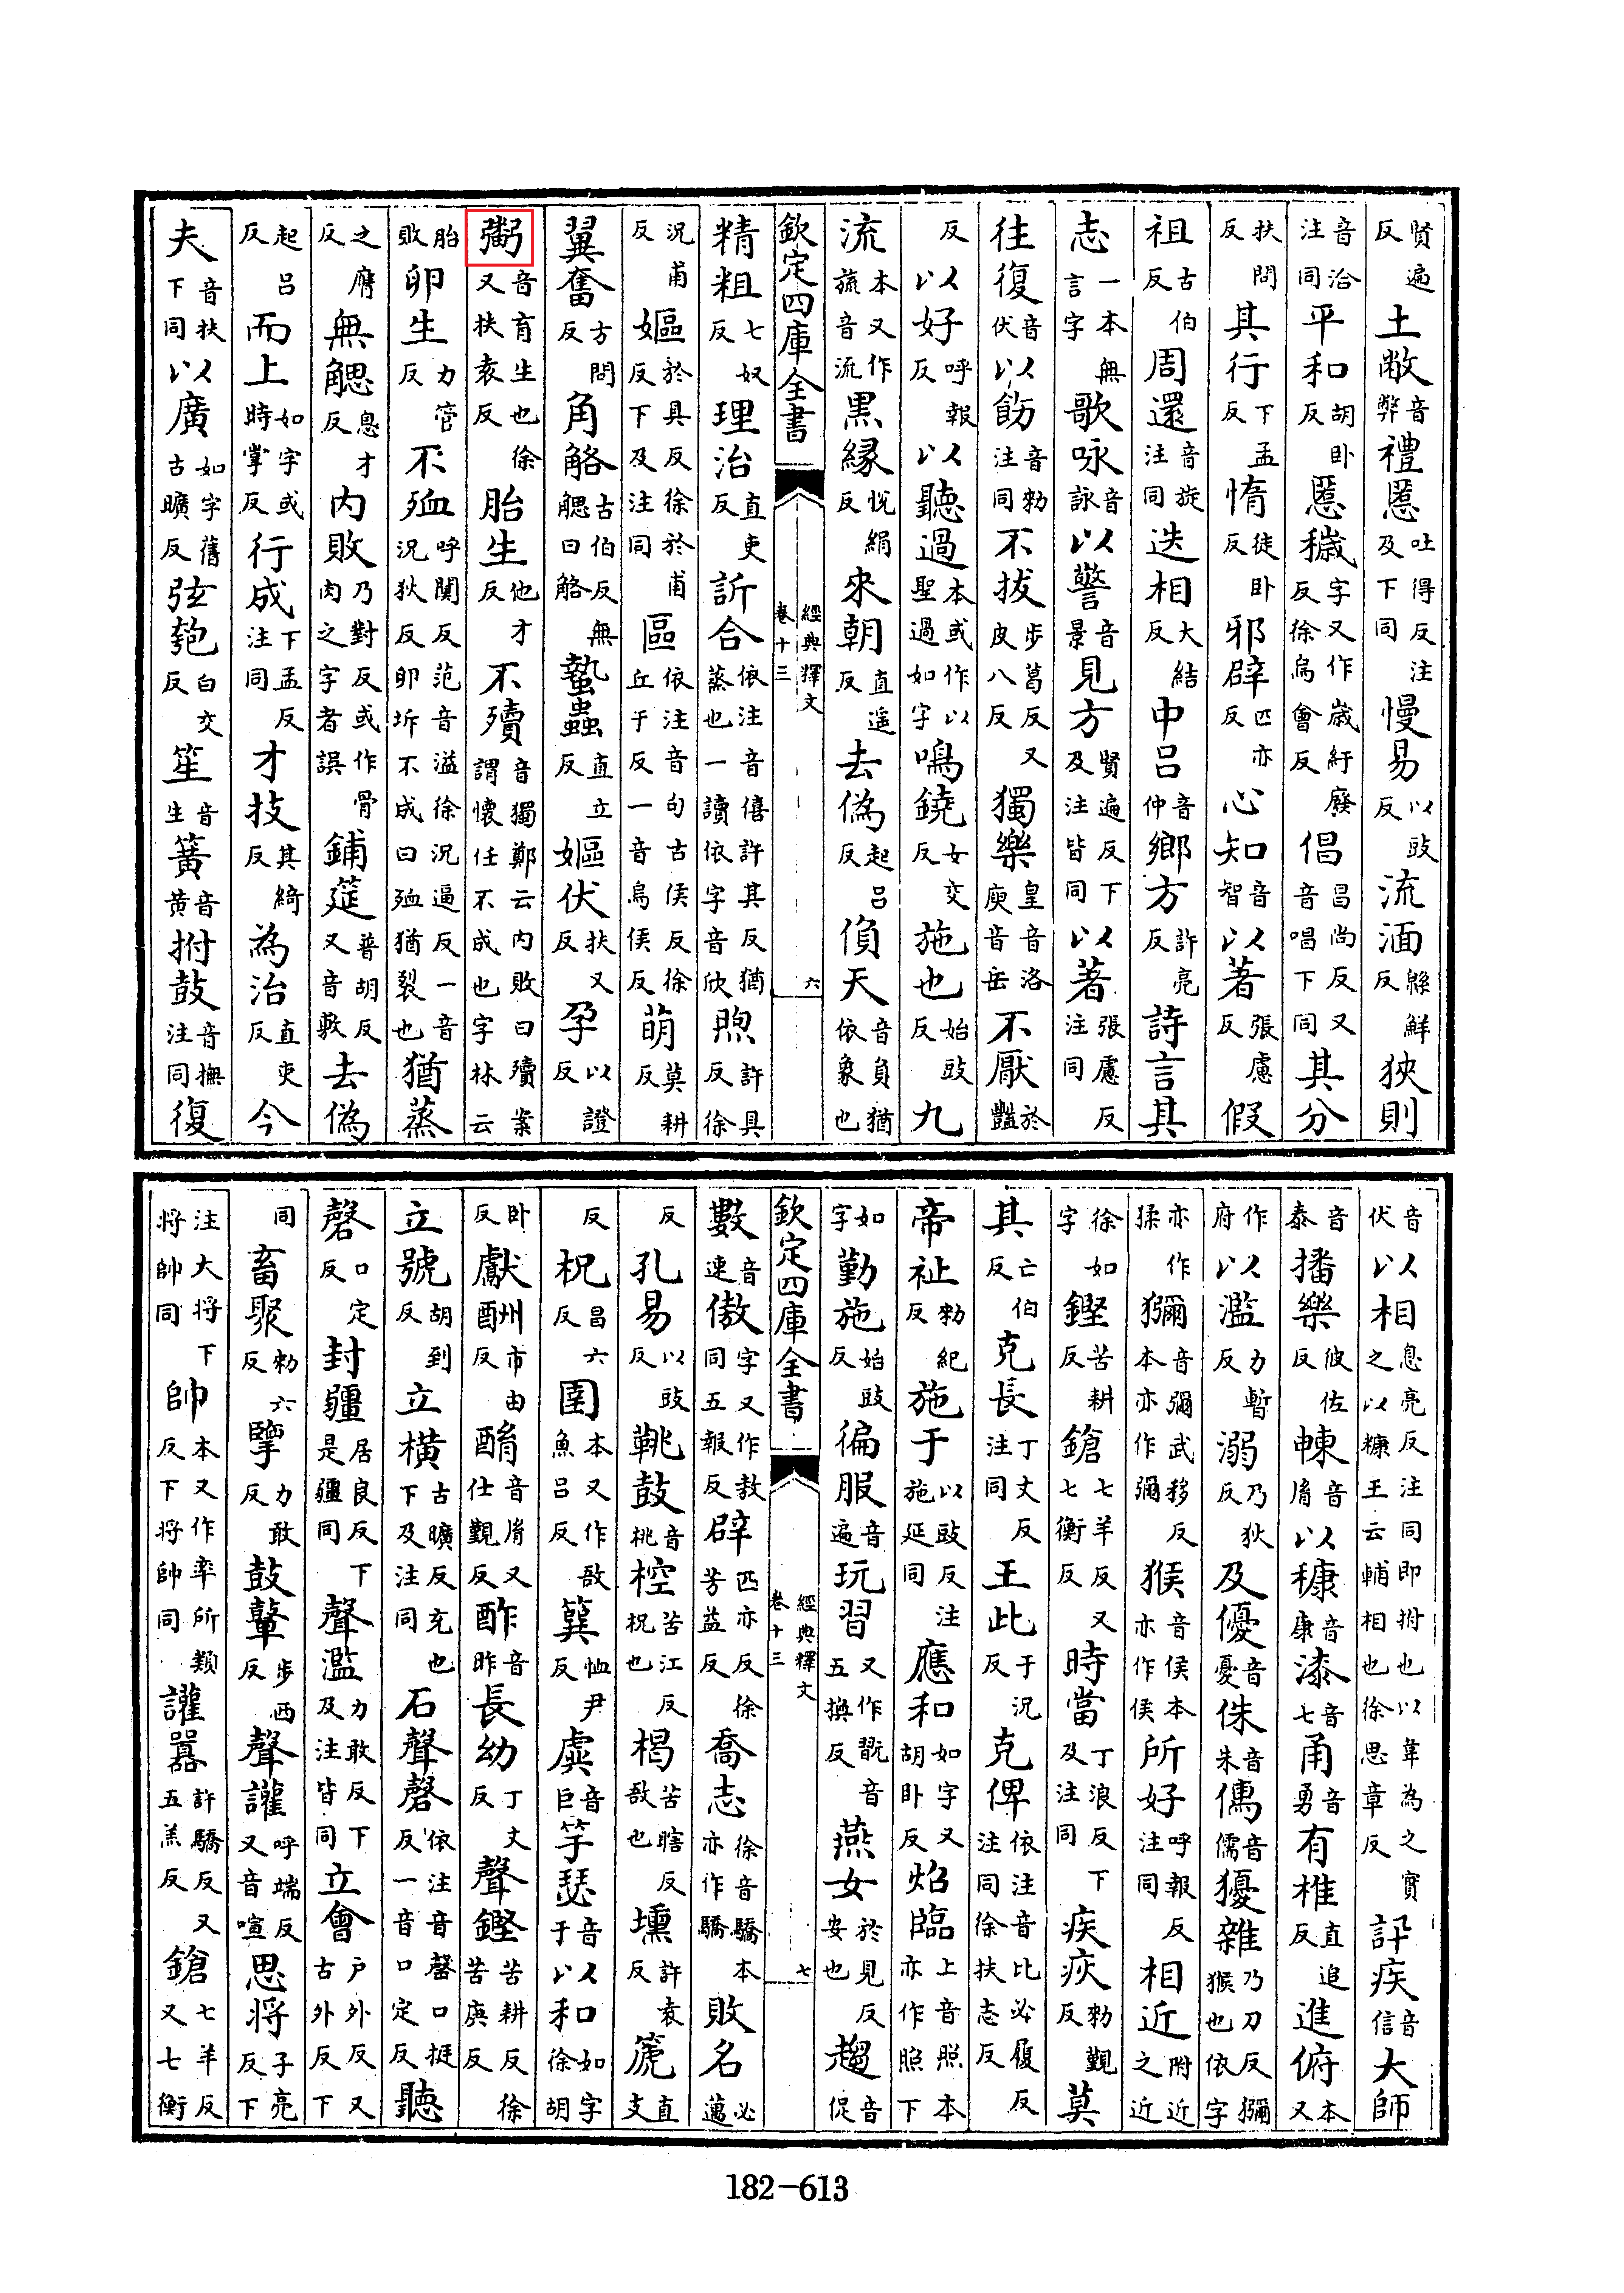 賢遍反土敝音弊禮慝吐得反注及下同慢易以豉反流湎緜鮮反狹則
音洽注同平和胡卧反慝穢字又作嵗紆廢反徐烏會反倡昌尚反又音唱下同其分
扶問反其行下孟反惰徒卧反邪辟匹亦反心知音智以著張慮反假
祖古伯反周還音旋注同迭相大結反中呂音仲鄉方許亮反詩言其
志一本無言字歌咏音詠以警音景見方賢遍反下及注皆同以著張慮反注同
往復音伏以飭音勑注同不拔步葛反又皮八反獨樂皇音洛庾音岳不厭於豔
反以好呼報反以聽過本或作以聖過如字鳴鐃女交反施也始豉反九
流本又作旒音流黒緣悅絹反來朝直遥反去偽起呂反偩天音負猶依象也
欽定四庫全書 經典釋文 卷十三 六
精粗七奴反理治直吏反訢合依注音僖許其反猶蒸也一讀依字音欣煦許具反徐
況甫反嫗於具反徐於甫反下及注同區依注音句古侯反徐丘于反一音烏侯反萌莫耕反
翼奮方問反角觡古伯反無䚡曰觡蟄蟲直立反嫗伏扶又反孕以證反
粥音育生也徐又扶袁反胎生他才反不殰音獨鄭云内敗曰殰案謂懷任不成也字林云
胎敗卵生力管反不殈呼闃反范音溢徐況逼反一音況狄反卵坼不成曰殈猶裂也猶蒸
之膺反無䚡息才反内敗乃對反或作骨肉之字者誤鋪筵普胡反又音敷去偽
起呂反而上如字或時掌反行成下孟反注同才技其綺反為治直吏反今
夫音扶下同以廣如字舊古曠反弦匏白交反笙音生簧音黄拊鼓音撫注同復
音伏以相息亮反注同即拊也以韋為之實之以糠王云輔相也徐思章反訊疾音信大師
音泰播樂彼佐反朄音胤以穅音康漆音七甬音勇有椎直追反進俯本又
作府以濫力暫反溺乃狄反及優音憂侏音朱儒音儒獶雜乃刀反獼猴也依字
亦作猱獼音彌武移反本亦作彌猴音侯本亦作侯所好呼報反注同相近附近之近
徐如字鏗苦耕反鎗七羊反又七衡反時當丁浪反下及注同疾疢勑覲反莫
其亡伯反克長丁丈反注同王此于況反克俾依注音比必履反注同徐扶志反
帝祉勑紀反施于以豉反注施延同應和如字又胡卧反焰臨上音照本亦作照下
如字勤施始豉反徧服音遍玩習又作翫音五換反燕女於見反安也趨音促
欽定四庫全書 經典釋文 卷十三 七
數音速傲字又作敖同五報反辟匹亦反徐芳益反喬志徐音驕本亦作驕敗名必邁
反孔易以豉反鞉鼓音桃椌苦江反柷也楬苦瞎反敔也壎許袁反篪直支
反柷昌六反圉本又作敔魚呂反簨恤尹反虡音巨竽瑟音于以和如字徐胡
卧反獻酬市由反酳音胤又仕覲反酢音昨長幼丁丈反聲鏗苦耕反徐苦庚反
立號胡到反立橫古曠反充也下及注同石聲磬依注音罄口挺反一音口定反聽
磬口定反封疆居良反下是疆同聲濫力敢反下及注皆同立會戶外反又古外反下
同畜聚勑六反擥力敢反鼓鼙步西反聲讙呼端反又音喧思將子亮反下
注大将下將帥同帥本又作率所類反下将帥同讙囂許驕反又五羔反鎗七羊反又七衡
182-613